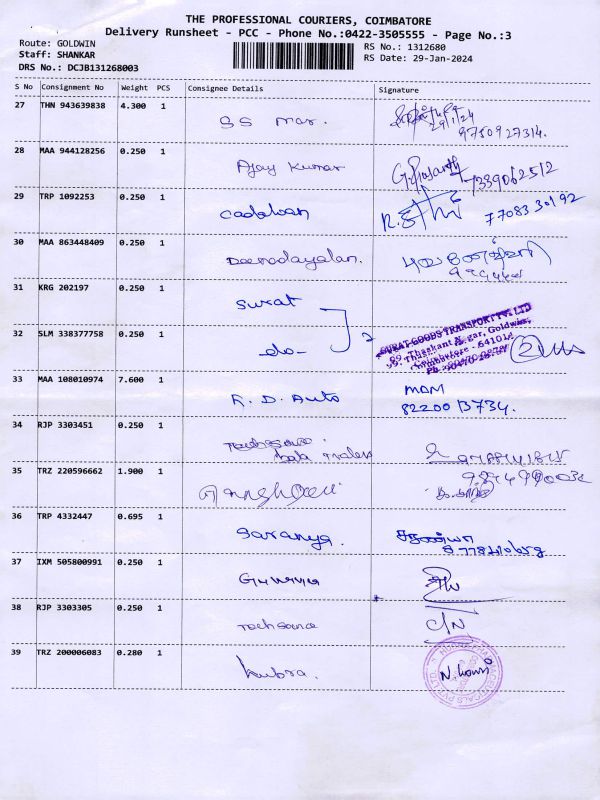 THE PROFESSIONAL COURIERS, COIMBATORE
Delivery Runsheet - PCC - Phone No.:0422-3505555 - Page No.:3
Route: GOLDWIN
Staff: SHANKAR
DRS No.: DCJB131268003
RS No.: 1312680
RS Date: 29-Jan-2024
S No Consignment No Weight PCS Consignee Details Signature
27 THN 943639838 4.300 1 SS mar.
29/1/24
9750927314.
28 MAA 944128256 0.250 1 Ajay Kumar
7339062512
29 TRP 1092253 0.250 1 77083 30192
30 MAA 863448409 0.250 1 Deenadayalan.
31 KRG 202197 0.250 1 Surat
32 SLM 338377758 0.250 1 -do- 2
SURAT GOODS TRANSPORT PVT. LTD
Thaskant Nagar, Goldwins,
Coimbatore - 641014
2
33 MAA 108010974 7.600 1 R. D. Auto MDM
8220013734.
34 RJP 3303451 0.250 1
35 TRZ 220596662 1.900 1
36 TRP 4332447 0.695 1 Saranya. சரண்யா
37 IXM 505800991 0.250 1
38 RJP 3303305 0.250 1 C/N
39 TRZ 200006083 0.280 1 Kubra.